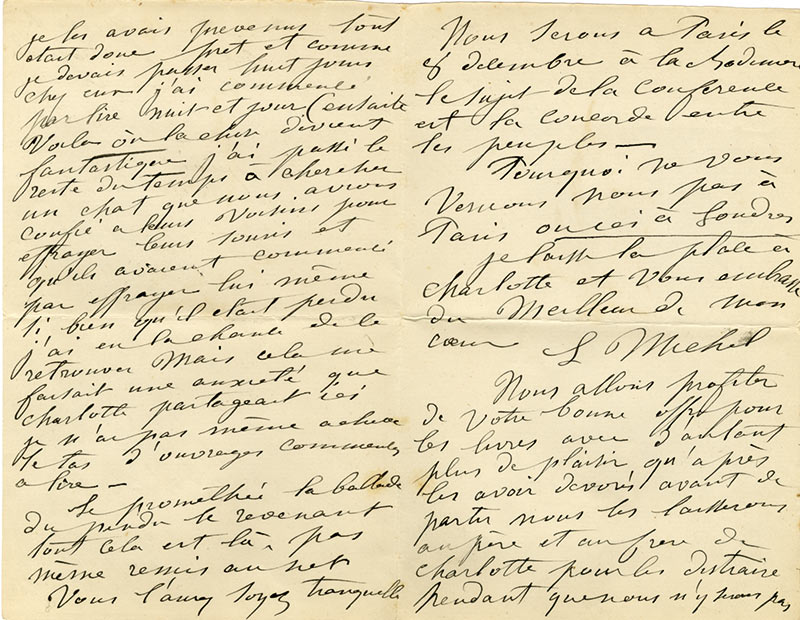 je les avais prevenus tout
etait donc pret et comme
je devais passer huit jours
chez eux j'ai commencé
par lire nuit et jour (ensuite
Voila où la chose devient
fantastique j'ai passé le
reste du temps a chercher
un chat que nous avions
confié a leurs voisins pour
effrayer leurs souris et
qu'ils avaient commencé
par effrayer lui même
si bien qu'il etait perdu
j'ai eu la chance de le
retrouver Mais cela me
faisait une anxieté que
charlotte partageait ici
je n'ai pas même achevé
le tas d'ouvrages commencés
a lire –
Le promethée la ballade
du pendu le revenant
tout cela est là, pas
même remis au net
Vous l'aurez soyez tranquille
Nous serons a Paris le
8 decembre à la
le sujet de la conference
est la concorde entre
les peuples –
Pourquoi ne vous
verrons nous pas à
Paris ou ici à Londres
je laisse la place à
charlotte et vous embrasse
du Meilleur de mon
cœur L Michel
Nous allons profiter
de votre bonne offre pour
les livres avec d'autant
plus de plaisir qu'après
les avoir devorés avant de
partir nous les laisserons
au père et au frere de
charlotte pour les distraire
pendant que nous n'y serons pas